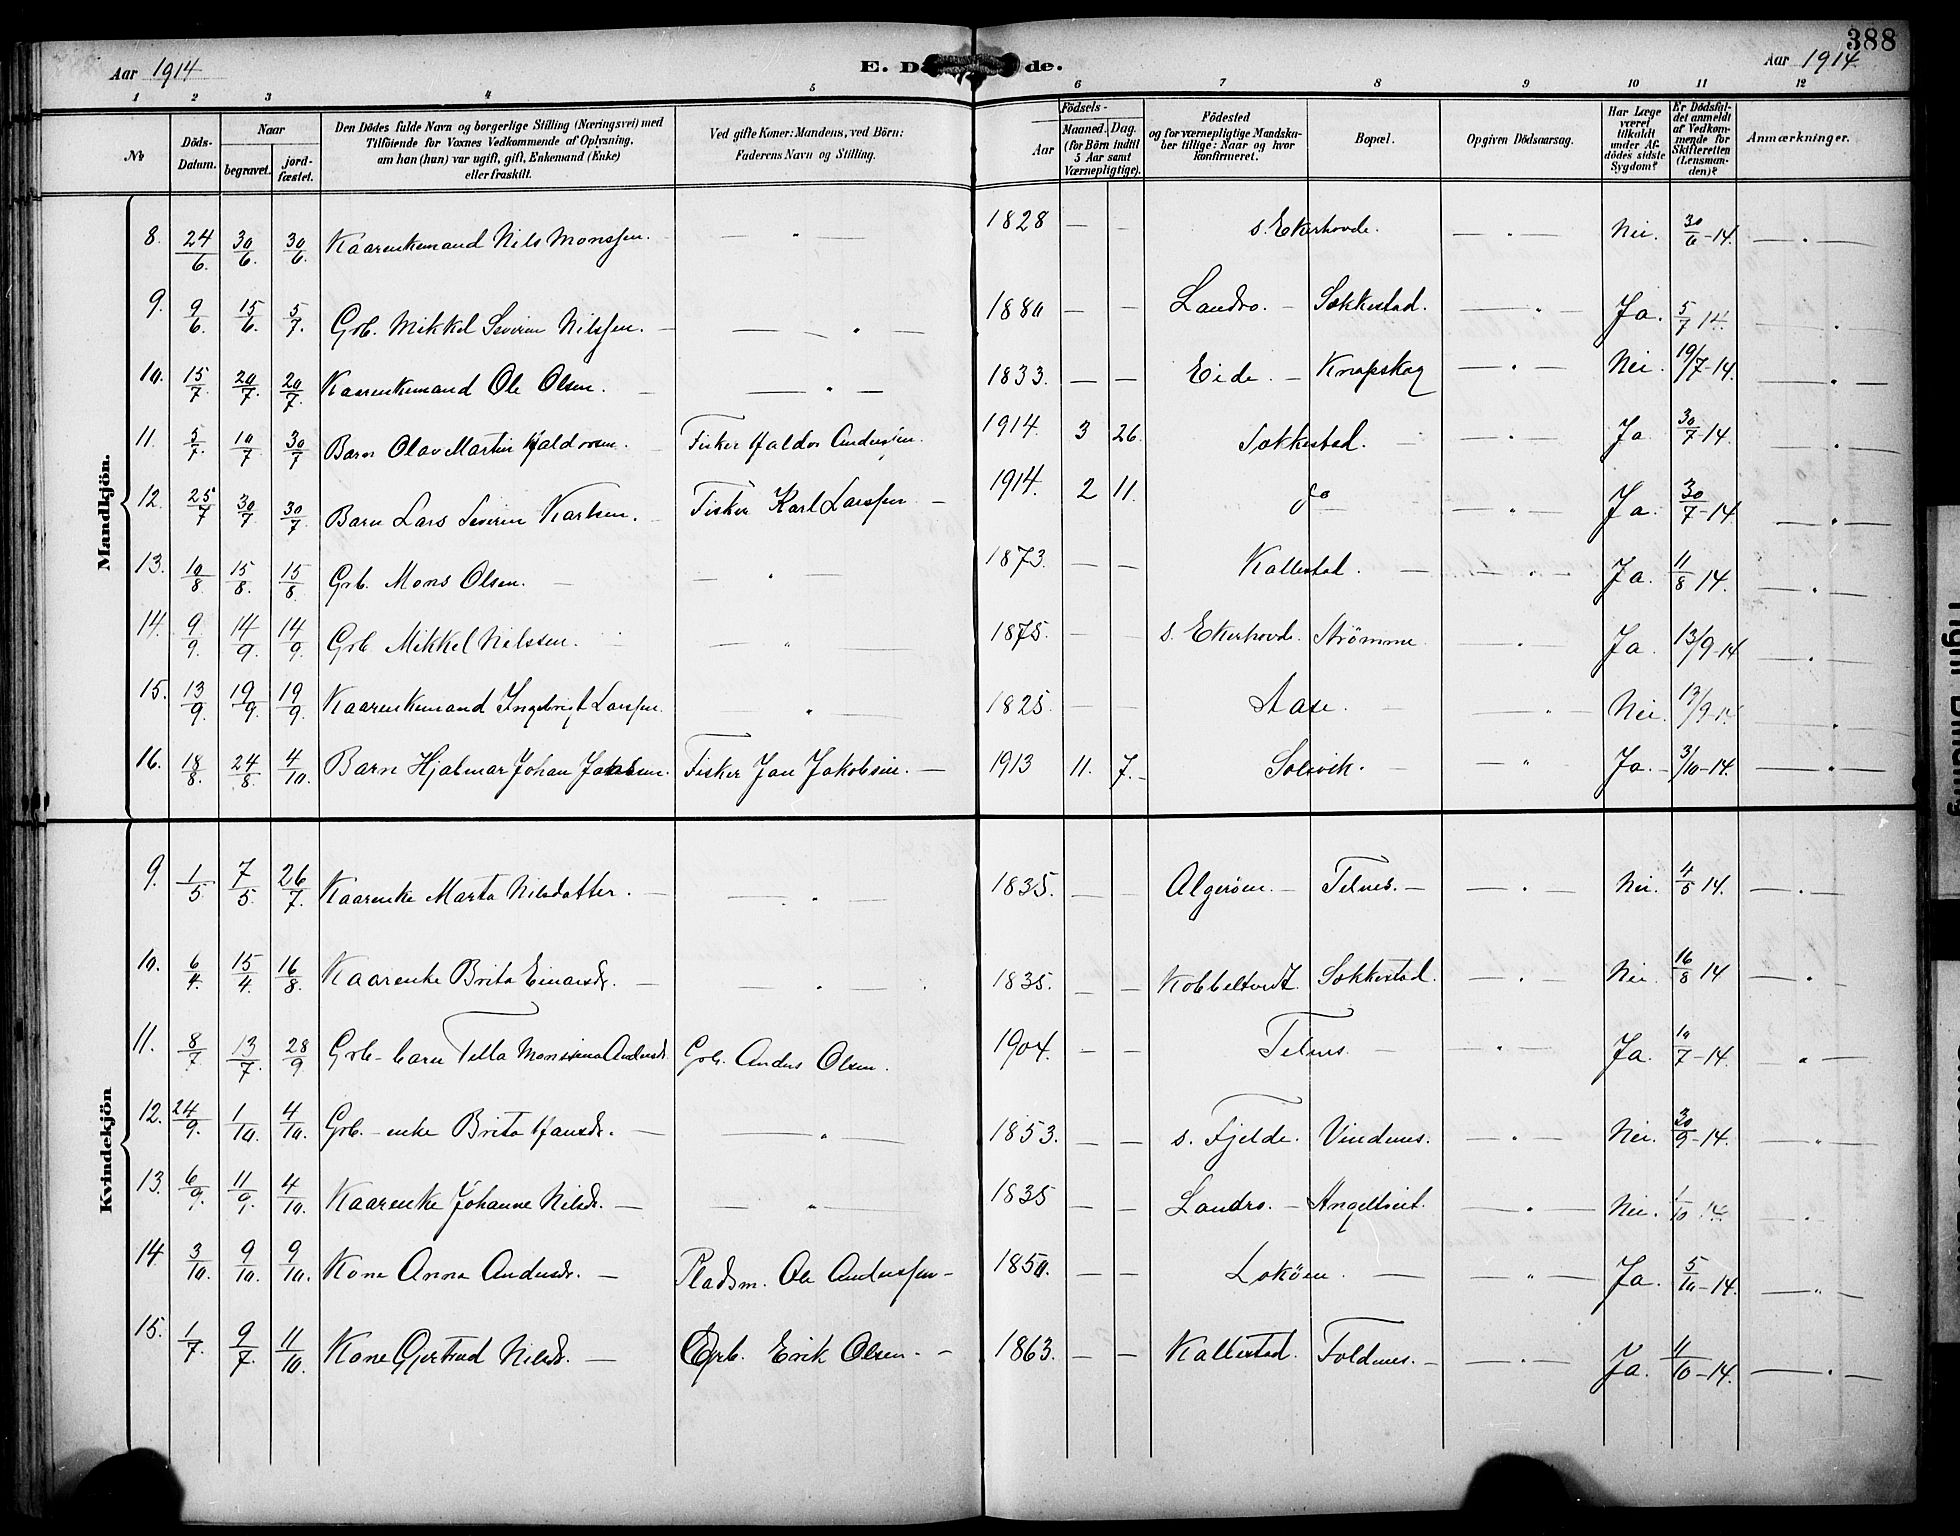 388
Aar 1914
E. Dö de.
Aar 1914
1 2 3 4 5 6 7 8 9 10 11 12
No
Döds-Datum.
Naar
begravet.
jord-fæstet.
Den Dödes fulde Navn og borgerlige Stilling (Næringsvei) med
Tilföiende for Voxnes Vedkommende af Oplysning,
om han (hun) var ugift, gift, Enkemand (Enke)
eller fraskilt.
Ved gifte Koner: Mandens, ved Börn:
Faderens Navn og Stilling.
Födsels-
Aar
Maaned. Dag.
(for Börn indtil
5 Aar samt
Værnepligtige).
Födested
og for værnepligtige Mandska-
ber tillige: Naar og hvor
konfirmeret.
Bopæl.
Opgiven Dödsaarsag.
Har Læge
været
tilkaldt
under Af-
dödes sidste
Sygdom?
Er Dödsfal-
det anmeldt
af Vedkom-
mende for
Skifteretten
(Lensman-
den)?
Anmærkninger.
Mandkjön.
8. 24/6. 30/6. 30/6. Kaarenkemand Nils Monssen. — " — 1828 — — s. Ekerhovde. — " — Nei. 30/6-14. — " —
9. 9/6. 15/6. 5/7. Grb. Mikkel Severin Nilssen. — " — 1880 — — Landro. — Sokkestad. — " — Ja. 5/7 14. "
10. 15/7. 20/7. 20/7. Kaarenkemand Ole Olsen. — " — 1833. — — Eide. — Knapskog — " — Nei 19/7-14. — " —
11. 5/7. 10/7 30/7 Barn Olav Martin Haldorsen. Fisker Haldor Anderssen. 1914. 3 26. Sokkestad. — " — Ja 30/7-14. — " —
12. 25/7 30/7 30/7 Barn Lars Severin Karlsen. Fisker Karl Larssen — 1914. 2 11. do — " — Ja. 30/7-14. — " —
13. 10/8. 15/8. 15/8 Grb. Mons Olsen. — " — 1873. — — Kallestad. — " — Ja. 11/8 14. — " —
14. 9/9. 14/9. 14/9. Grb Mikkel Nilssen. — " — 1875. — — s. Ekerhovde. Strömme — " — Ja. 13/9-14 — " —
15. 13/9. 19/9. 19/9. Kaarenkemand Ingebrigt Larssen. — " — 1825. — — Aase. — " — Nei. 13/9-14 — " —
16. 18/8. 24/8. 4/10. Barn Hjalmar Johan Jansen. Fisker Jan Jakobsen. — 1913 11. 7. — Solsvik. — " — Ja. 3/10-14. — " —
Kvindekjön
9. 1/5. 7/5. 26/7. Kaarenke Marta Nilsdatter. — " — 1835. — — Algeröen. — Telnes. — " — Nei. 4/5 14. — " —
10. 6/4. 15/4. 16/8. Kaarenke Brita Einarsdr. — " — 1835. — — Kobbeltvedt. Sokkestad. — " — Nei. 16/8 14 — " —
11. 8/7 13/7. 28/9 Grb-barn Tella Monssina Andersdr. Grb. Anders Olsen. 1904. — — Telnes. — " — Ja. 10/7-14. " —
12. 24/9. 1/10. 4/10. Grb.-enke Brita Hansdr. — " — 1853. — — s. Fjelde. Vindenes. — " — Nei. 30/9-14. — " —
13. 6/9. 11/9. 4/10. Kaarenke Johanne Nilsdr. — " — 1835 — — Landro. — Angeltveit. — " — Nei. 1/10 14. "
14. 3/10. 9/10. 9/10. Kone Anna Andersdr. — Pladsm. Ole Anderssen — 1850. — — Loköen. — " — Ja. 5/10-14. — " —
15. 1/7. 9/7. 11/10. Kone Gjertrud Nilsdr. — Grb. Erik Olsen. — 1863. — — Kallestad. Foldnes. — " — Ja. 11/10-14. — " —